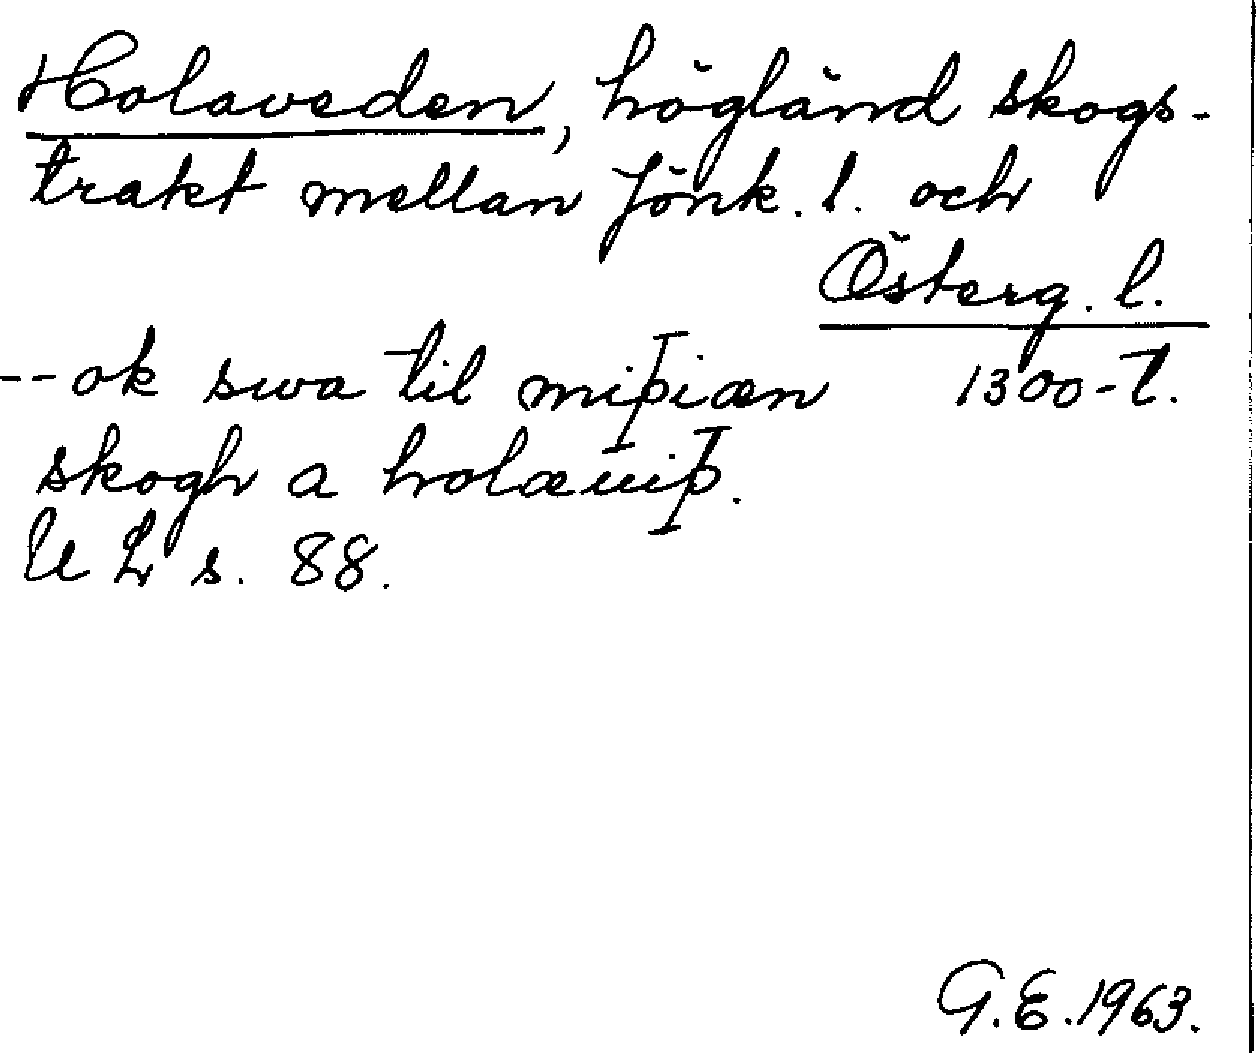 Holaveden, högländ skogs-
trakt mellan Jönk. l. och
Österg. l.
-- ok swa til miþiæn 1300-t.
skogh a holæuiþ.
U L s. 88.
G.E. 1963.